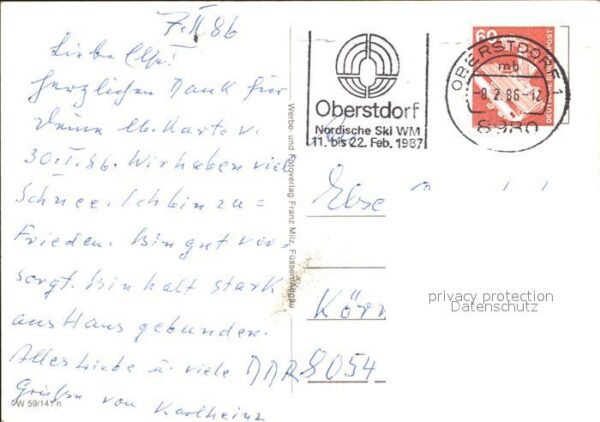 7.II 86
Liebe Elfi!
herzlichen Dank für
Deine Karte v.
30.I.86. Wir haben viel
Schnee. Ich bin zu=
frieden. Bin gut ver=
sorgt. Bin halt stark
ans Haus gebunden.
Alles Liebe u. viele
Grüße von Karlheinz
W 59/141 n
Werbe- und Fotoverlag Franz Milz, Füssen/Allgäu
Oberstdorf
Nordische Ski WM
11. bis 22. Feb. 1987
OBERSTDORF 1
mb
-8.2.86-12
8980
60
DEUTSCHE BUNDESPOST
Else
Körn
DDR 8054
privacy protection
Datenschutz